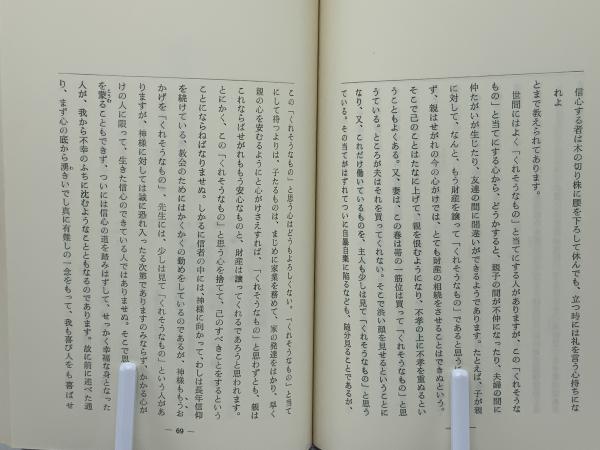 信心する者は木の切り株に腰を下ろして休んでも、立つ時には礼を言う心持ちにな
れよ
とまで教えられてあります。
世間にはよく「くれそうなもの」と当てにする人がありますが、この「くれそうな
もの」と当てにする心から、どうかすると、親子の間が不仲になったり、夫婦の間に
仲たがいが生じたり、友達の間に間違いができるようであります。たとえば、子が親
に対して、なんと、もう財産を譲って「くれそうなもの」であると思うに
ず、親はせがれの今の心がけでは、とても財産の相続をさせることはできぬという。
そこで己のことはたなに上げて、親を恨むようになり、不孝の上に不孝を重ぬるとい
うこともよくある。又、妻は、この春は帯の一筋位は買って「くれそうなもの」と思
うている。ところが夫はそれを買ってくれない。そこで渋い顔を見せるということに
なり、又、これだけ働いているものを、主人も少しは見て「くれそうなもの」と思う
ている。その当てがはずれてついに自暴自棄に陥るなども、随分見ることであるが、
この「くれそうなもの」と思う心はどうもよろしくない。「くれそうなもの」と当て
にして待つよりは、子たるものは、まじめに家業を務めて、家の発達をはかり、早く
親の心を安むるようにと心がけさえすれば、「くれそうなもの」と思わずとも、親は
これならばせがれもももう安心なものと、財産は譲ってくれるであろうと思われます。
とにかく、この「くれそうなもの」と思う心を捨てて、己のすべきことをするという
ことにならねばなりませぬ。しかるに信者の中には、神様に向かって、わしは長年信仰
を続けている、教会のためにはかくかくの勤めをしているのであるが、神様も、もうお
かげを「くれそうなもの」、先生には、少しは見て「くれそうなもの」という人があ
りますが、神様に対しては誠に恐れ入ったる次第でありますのみならず、かかる心が
けの人に限って、生きた信心のできている人ではありませぬ。そこで
を蒙ることもできず、ついには信心の道を踏みはずして、せっかく幸福な身となった
人が、我から不幸のふちに沈むようなことともなるのであります。故に前に述べた通
り、まず心の底から湧きいでし真に有難しの一念をもって、我も喜び人をも喜ばせ
― 69 ―